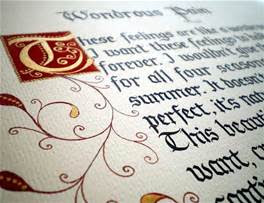 Wondrous Pain
These feelings are like
I want these feelings to
forever. I wouldn't
for all four season
summer. It doesn't
perfect, it's natu
This beauti
want, cr